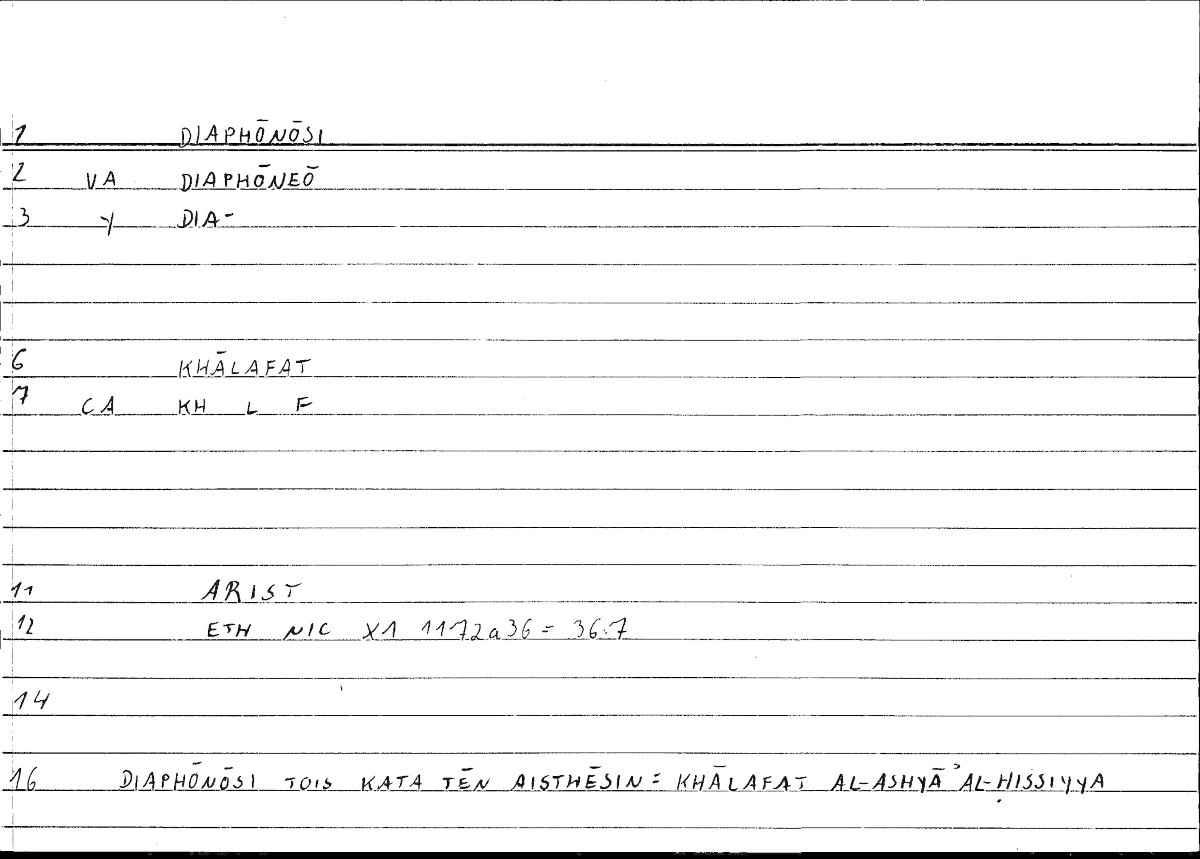 1 DIAPHŌNŌSI
2 VA DIAPHŌNEŌ
3 Y DIA-
6 KHĀLAFAT
7 CA KH L F
11 ARIST
12 ETH NIC X1 1172a36 = 36.7
14
16 DIAPHŌNŌSI TOIS KATA TĒN AISTHĒSIN = KHĀLAFAT AL-ASHYĀʾ AL-ḤISSIYYA